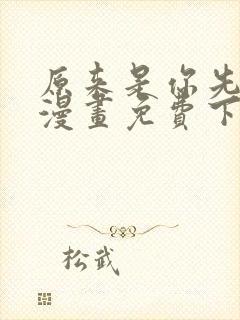 原来是你先
漫畫免費下
松武